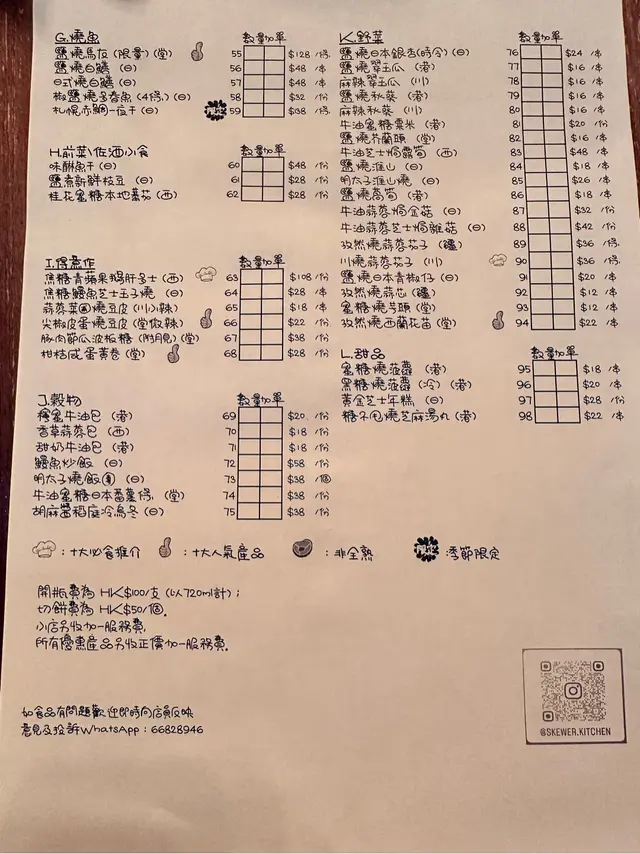 G.燒魚 數量加單
鹽燒馬友(限量)(堂) 55 $128 /條
鹽燒白鱔(日) 56 $48 /本
日式燒白鱔(日) 57 $48 /本
椒鹽燒多春魚(4條)(日) 58 $32 /份
札幌赤鯛一夜干(日) 59 $38 /條
H.前菜\佐酒小食 數量加單
味醂魚干(日) 60 $48 /份
鹽煮新鮮枝豆(日) 61 $28 /份
桂花蜜糖本地蕃茄(西) 62 $28 /份
I.得意作 數量加單
焦糖青蘋果鵝肝多士(西) 63 $108 /份
焦糖鰻魚芝士玉子燒(日) 64 $28 /本
蒜蓉菜圃燒豆皮(川)(辣) 65 $18 /本
尖椒皮蛋燒豆皮(堂做辣) 66 $22 /份
豚肉節瓜波板糖(附月見)(堂) 67 $38 /份
柑桔咸蛋黃卷(堂) 68 $28 /份
J.穀物 數量加單
椎蜜牛油包(港) 69 $20 /份
香草蒜蓉包(西) 70 $18 /份
甜奶牛油包(港) 71 $18 /份
鰻魚炒飯(日) 72 $58 /份
明太子燒飯團(日) 73 $38 /個
牛油蜜糖日本番薯條(堂) 74 $38 /份
胡麻醬稻庭冷烏冬(日) 75 $38 /份
K.野菜 數量加單
鹽燒日本銀杏(時令)(日) 76 $24 /本
鹽燒翠玉瓜(港) 77 $16 /本
麻辣翠玉瓜(川) 78 $16 /本
鹽燒秋葵(港) 79 $16 /本
麻辣秋葵(川) 80 $16 /本
牛油蜜糖粟米(港) 81 $20 /份
鹽燒芥蘭頭(堂) 82 $16 /本
牛油芝士焗露筍(西) 83 $48 /本
鹽燒淮山(日) 84 $18 /本
明太子淮山燒(日) 85 $26 /本
鹽燒萵筍(港) 86 $18 /本
牛油蒜蓉焗金菇(日) 87 $32 /份
牛油蒜蓉芝士焗雜菇(日) 88 $42 /份
孜然燒蒜蓉茄子(疆) 89 $36 /條
川燒蒜蓉茄子(川) 90 $36 /條
鹽燒日本青椒仔(日) 91 $20 /本
孜然燒蒜芯(疆) 92 $12 /本
蜜糖燒芋頭(堂) 93 $12 /本
孜然燒西蘭花苗(堂) 94 $22 /本
L.甜品 數量加單
蜜糖燒菠蘿(港) 95 $18 /本
黑糖燒菠蘿(冷)(港) 96 $20 /本
黃金芝士年糕(日) 97 $28 /份
糖不甩燒芝麻湯丸(港) 98 $22 /本
:十大必食推介 :十大人氣產品 :非全熟 :季節限定
開瓶費為 HK$100/支(以720ml計);
切餅費為 HK$50/個.
小店另收加一服務費.
所有優惠產品另收正價加一服務費.
如食品有問題歡迎即時向店員反映
意見及投訴WhatsApp:66828946
@SKEWER.KITCHEN